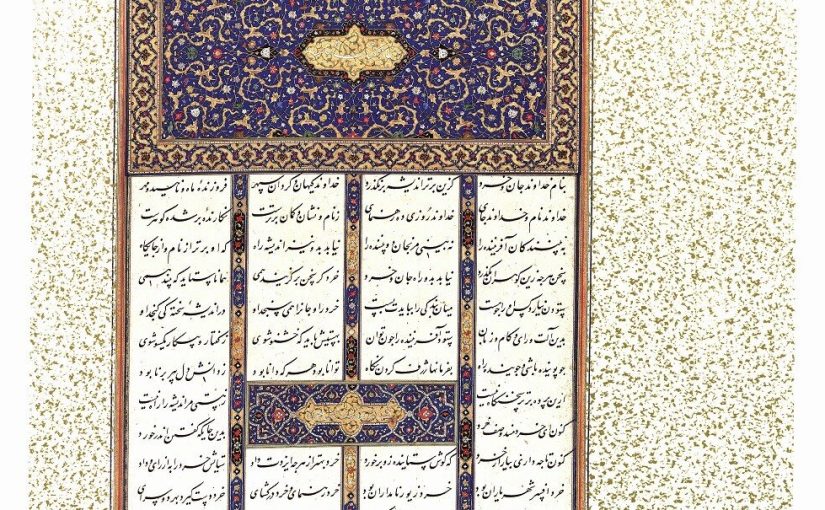 بنام خداوند جان و خرد کزین برتر اندیشه بر نگذرد خداوند کیهان گردان سپهر فروزنده ماه و ناهید و مهر
خداوند نام و خداوند جای خداوند روزی ده رهنمای ز نام و نشان و گمان برترست نگارنده بر شده گوهرست
به بینندگان آفریننده را نه بینی مرنجان دو بیننده را نیابد بدو نیز اندیشه راه که او برتر از نام و از جایگاه
سخن هر چه زین گوهران بگذرد نیابد بدو راه جان و خرد خرد گر سخن برگزیند همی همانا ستاید که بیند همی
ستودن کس او را چو هست میان بندگی را ببایدت بست خرد را و جان را همی سنجد او در اندیشه سخته کی گنجد او
بدین آلت و رای و کام و زبان ستود آفریننده را چون توان بهستیش باید که خستو شوی ز گفتار و پیکار یکسو شوی
باشی و جوینده راه بفرمانها ژرف کردن نگاه توانا بود هر که دانا بود ز دانش دل پیر برنا بود
ازین پرده برتر سخن گاه نیست ز هستی مر اندیشه را راه نیست
کنون ای خردمند وصف خرد بدین جایگه گفتن اندر خورد
کنون تا چه داری بیار از خرد که گوش زو برخورد خرد بهتر از هر چه ایزدت داد ستایش خرد را به از راه داد
خرد افسر شهریاران بود خرد زیور نامداران بود خرد رهنمای و خرد دلگشای خرد دست گیرد بهر دو سرای